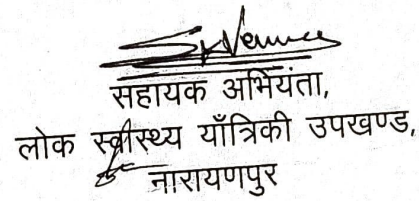 सहायक अभियंता,
लोक स्वास्थ्य याँत्रिकी उपखण्ड,
नारायणपुर